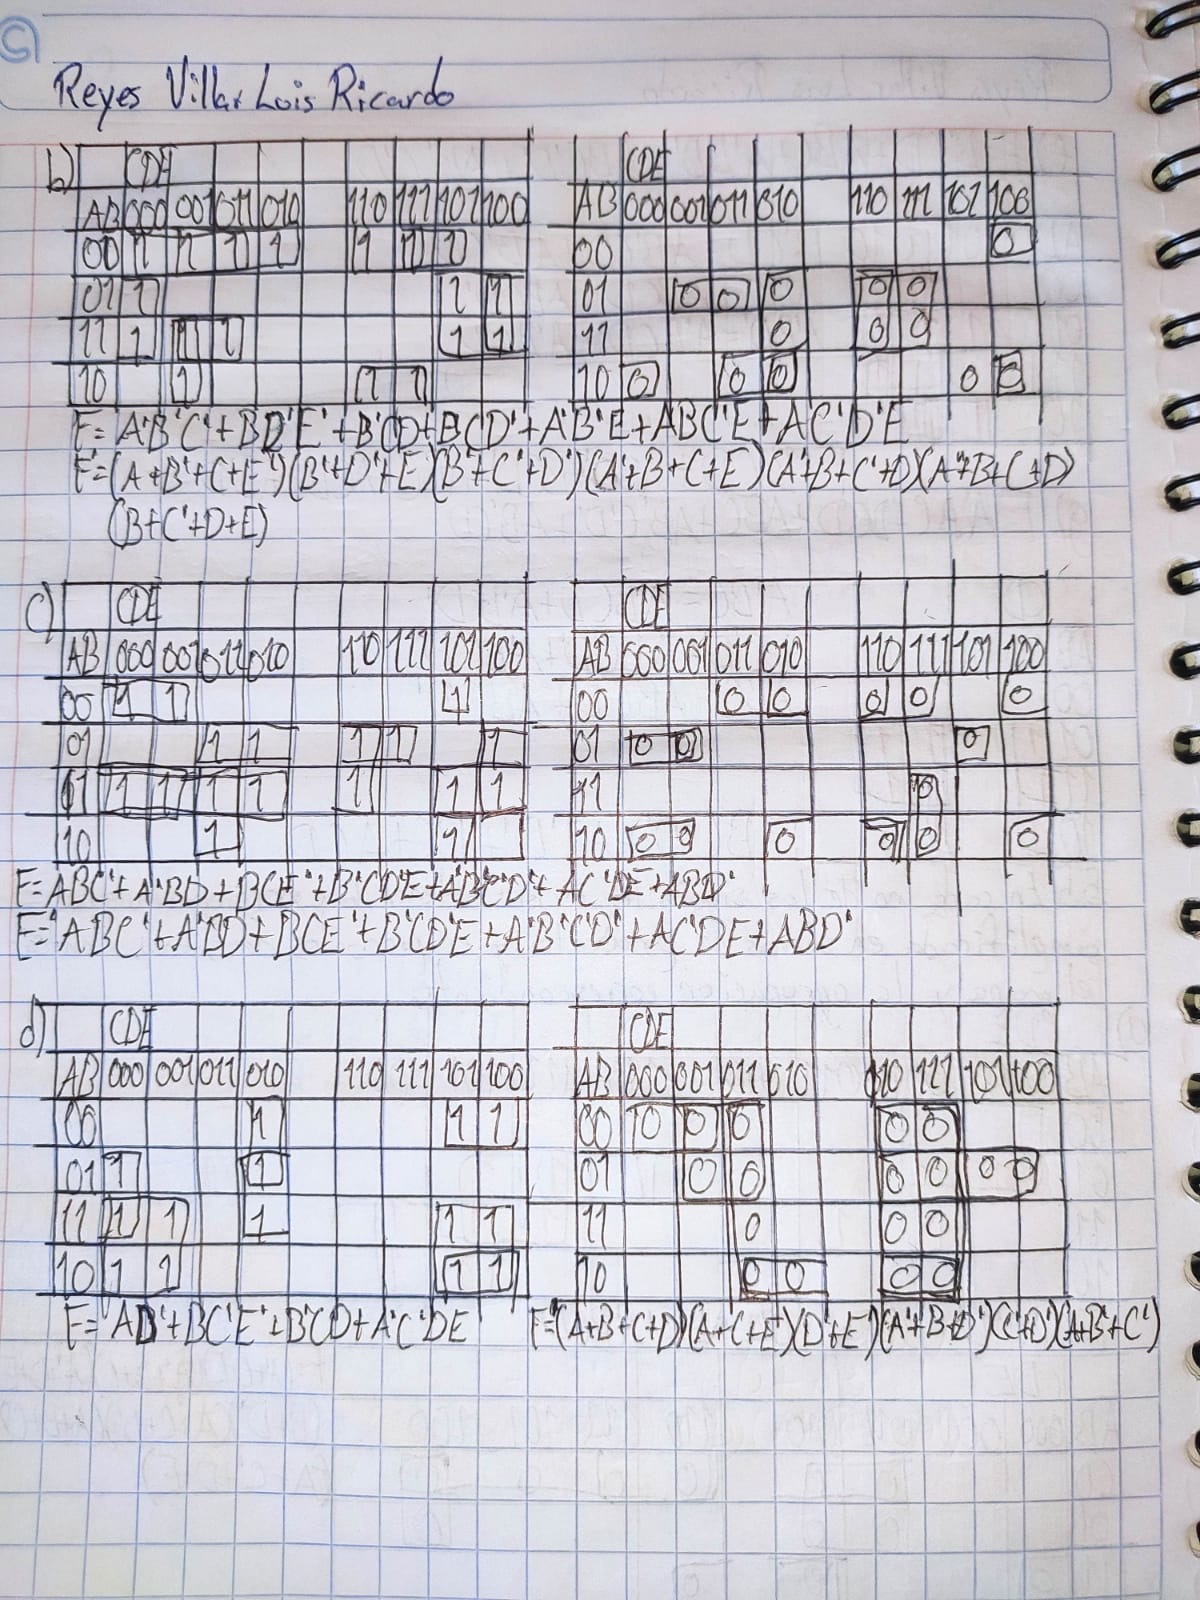 Reyes Villar Luis Ricardo
b) CDE
AB 000 001 011 010 110 111 101 100
00 1 1 1 1 1 1 1
01 1 1 1
11 1 1 1 1 1
10 1 1 1
CDE
AB 000 001 011 010 110 111 101 100
00 0
01 0 0 0 0 0
11 0 0 0
10 0 0 0 0 0
F=A'B'C'+BD'E'+B'CD+BCD'+A'B'E+ABC'E+AC'D'E
F=(A+B'+C+E')(B'+D'+E)(B'+C'+D')(A'+B+C+E)(A'+B+C'+D)(A'+B+C+D')
(B+C'+D+E)
c) CDE
AB 000 001 011 010 110 111 101 100
00 1 1 1
01 1 1 1 1 1
11 1 1 1 1 1 1 1
10 1 1
CDE
AB 000 001 011 010 110 111 101 100
00 0 0 0 0 0
01 0 0 0
11 0
10 0 0 0 0 0 0
F=ABC'+A'BD+BCE'+B'CD'E+A'B'C'D'+AC'DE+ABD'
F=ABC'+A'BD+BCE'+B'CD'E+A'B'C'D'+AC'DE+ABD'
d) CDE
AB 000 001 011 010 110 111 101 100
00 1 1 1
01 1 1
11 1 1 1 1 1
10 1 1 1 1
CDE
AB 000 001 011 010 110 111 101 100
00 0 0 0 0 0
01 0 0 0 0 0 0
11 0 0 0
10 0 0 0 0
F=AD'+BC'E'+B'CD'+A'C'DE' F=(A+B+C+D)(A+C+E')(D'+E')(A'+B+D')(C'+D')(A+B'+C')